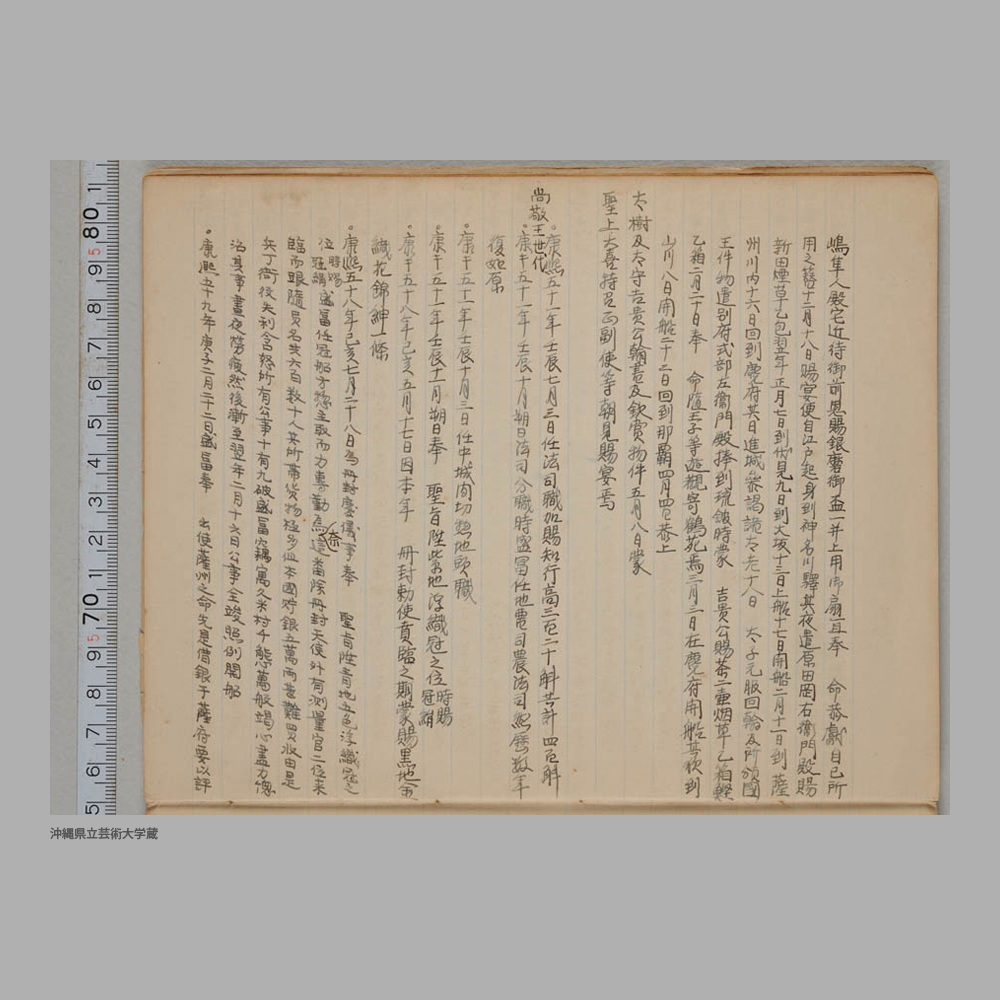 嶋隼人殿宅近待御前恩賜銀磨御盃一并上用御扇且奉　命恭獻自己所
用之簪十二月十八日賜宴便自江戶起身到神名川驛其夜遣原田岡右衛門殿賜
新田煙草乙包翌年正月七日到伏見九日到大坂十三日上船十七日開船二月十一日到薩
州川内十六日回到麑府其日進城叅謁諸大老十八日　太子元服回翰及所領國
王件物遣別府式部左衛門殿捧到琉舘時蒙　吉貴公賜茶二壷烟草乙箱
乙箱二月二十日奉　命隨王子等遊觀寄鶴苑焉三月三日在麑府開船其秋到
山川八日開船二十二日回到那覇四月四日恭上
大樹及太守吉貴公翰書及欽賞物件五月八日蒙
聖上大喜特召正副使等朝見賜宴焉
尚敬王世代
。康熙五十一年壬辰七月三日任法司職加賜知行高三百二十斛共計四百斛
。康〃五十一年壬辰十月朔日法司分職時盛冨任地農司農法司經歷数年
復如原
。康〃五十一年壬辰十月三日任中城間切惣地頭職
。康〃五十一年壬辰十一月朔日奉　聖旨陞紫地浮織冠之位時賜冠絹
。康〃五十八年己亥五月十七日因本年　冊封勅使賁臨之期蒙賜黒地金
織花錦紳一條
。康熙五十八年己亥七月二十八日為冊封慶儀事奉　聖旨陞青地五色浮織冠之
位時賜冠絹盛冨任冠船方惣主取而力專勤焉奈這番除冊封天使外有測量官二位来
臨而跟隨員名共六百数十人其所帶貨物極多但本國貯銀五萬両老難買收由是
兵丁衙役失利含怒所有公事十有九破盛冨寓久米村千態萬般竭心盡力
治其事晝夜勞疲然後漸至翌年二月十六日公事全竣照例開船
。康熙五十九年庚子二月二十二日盛冨奉　出使薩州之命先是借銀于薩府要以評
80
70
沖縄県立芸術大学蔵